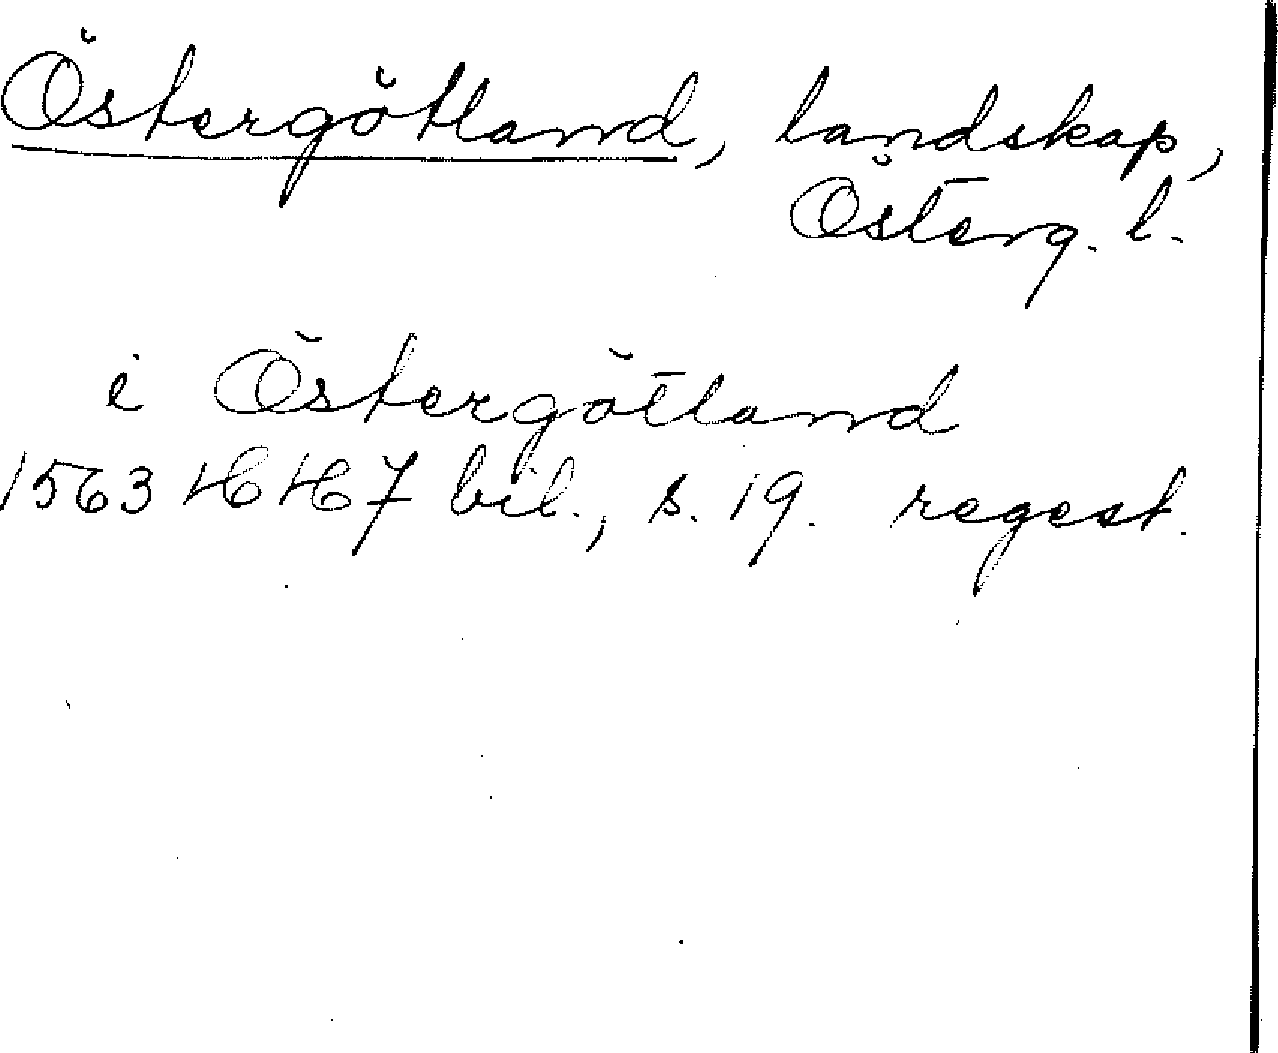 Östergötland, landskap,
Österg. l.
i Östergötland
1563 HH 7 bil., s. 19. regest.